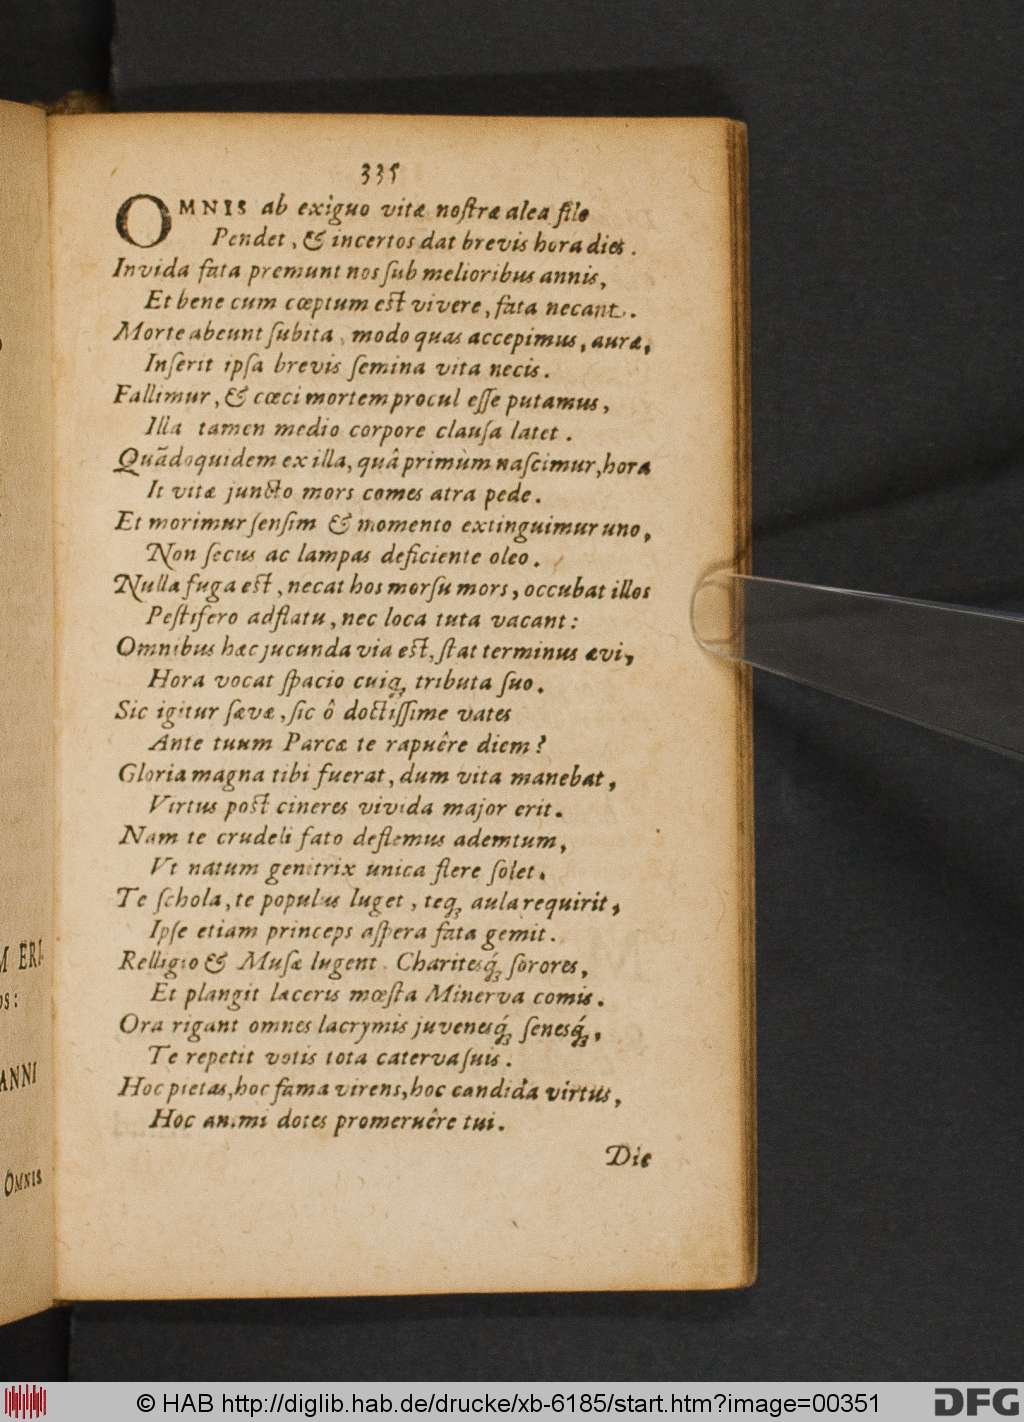 335
OMNIS ab exiguo vitæ nostræ alea filo
Pendet, & incertos dat brevis hora dies.
Invida fata premunt nos sub melioribus annis,
Et bene cum cœptum est vivere, fata necant.
Morte abeunt subita, modo quas accepimus, auræ,
Inserit ipsa brevis semina vita necis.
Fallimur, & cœci mortem procul esse putamus,
Illa tamen medio corpore clausa latet.
Quãdoquidem ex illa, quâ primùm nascimur, hora
It vitæ juncto mors comes atra pede.
Et morimur sensim & momento extinguimur uno,
Non secus ac lampas deficiente oleo.
Nulla fuga est, necat hos morsu mors, occubat illos
Pestifero adflatu, nec loca tuta vacant:
Omnibus hæc jucunda via est, stat terminus ævi,
Hora vocat spacio cuiq; tributa suo.
Sic igitur sævæ, sic ô doctissime vates
Ante tuum Parcæ te rapuêre diem?
Gloria magna tibi fuerat, dum vita manebat,
Virtus post cineres vivida major erit.
Nam te crudeli fato deflemus ademtum,
Vt natum genitrix unica flere solet.
Te schola, te populus luget, teq; aula requirit,
Ipse etiam princeps aspera fata gemit.
Relligio & Musæ lugent Charitesq́; sorores,
Et plangit laceris mœsta Minerva comis.
Ora rigant omnes lacrymis juvenesq́; senesq́;,
Te repetit votis tota caterva suis.
Hoc pietas, hoc fama virens, hoc candida virtus,
Hoc animi dotes promeruêre tui.
Die
M ERI
os:
ANNI
OMNIS
© HAB http://diglib.hab.de/drucke/xb-6185/start.htm?image=00351
DFG